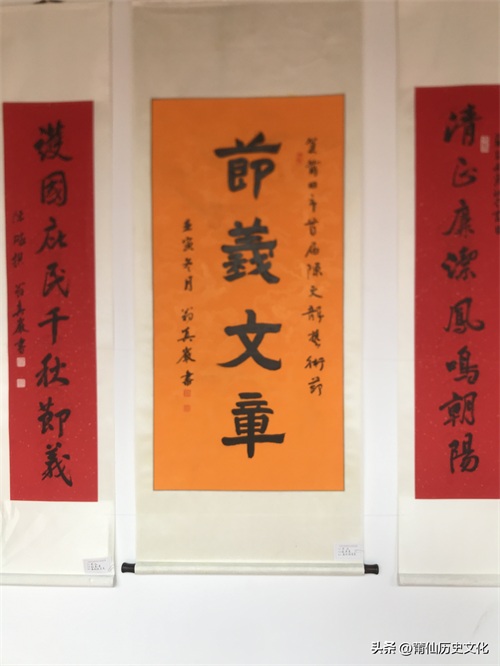 清正廉潔鳳鳴朝陽
首届陳文龍藝術節
節義文章
壬寅冬月 翁 書
護國庇民千秋節義
翁 書
头条 @莆仙历史文化